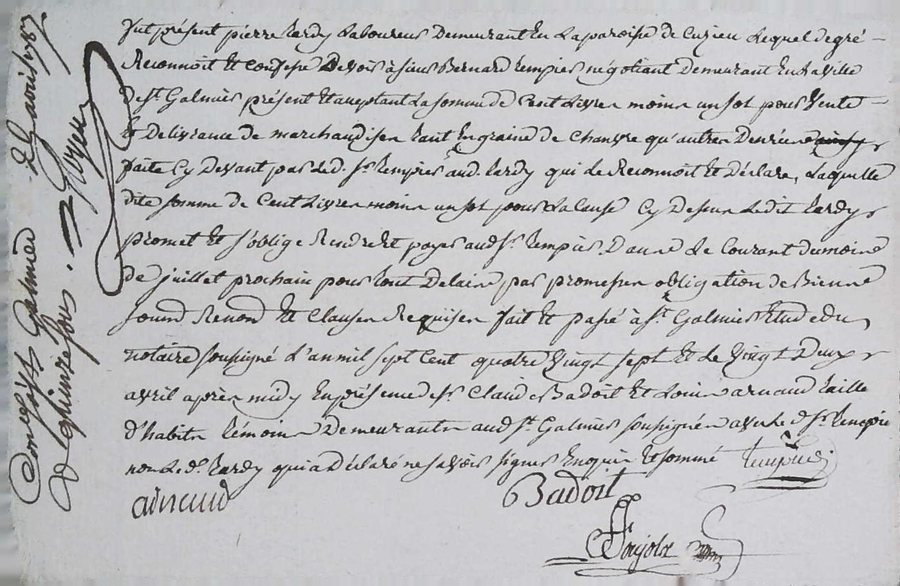 fut présent pierre tardy Laboureur Demeurant En La paroisse de Cuzieu Lequel de gré
Reconnoit Et confesse Devoir à sieur Bernard tempier négotiant Demeurant En La ville
de St Galmier présent Et acceptant La somme de Cent Livres moins un sol pour Vente
Et Delivrance de marchandises tant En graine de Chanvre qu'autres Denrées
faite Cy Devant par Led. Sr tempier aud. tardy qui Le Reconnoit Et Déclare, Laquelle
dite somme de Cent Livres moins un sol pour La Cause Cy Dessus Ledit tardy
promet Et s'oblige Rendre Et payer aud. Sr tempier Dans Le Courant du mois
de juillet prochain pour tout Delais, par promesses obligation de Biens
soums Renons Et Clauses Requises fait Et passé à St Galmier Etude du
notaire soussigné L'an mil sept Cent quatre Vingt sept Et Le Vingt Deux
avril après midy En présence de Sr Claude Badoit Et Louis arnaud taille
d'habits témoins Demeurants aud. St Galmier soussignés avec Le d. Sr tempier
non Le d. tardy qui a Déclaré ne savoir signer Enquis Et sommé tempier
arnaud Badoit
Controllé à St Galmier Le avril 1787
quinze sols.